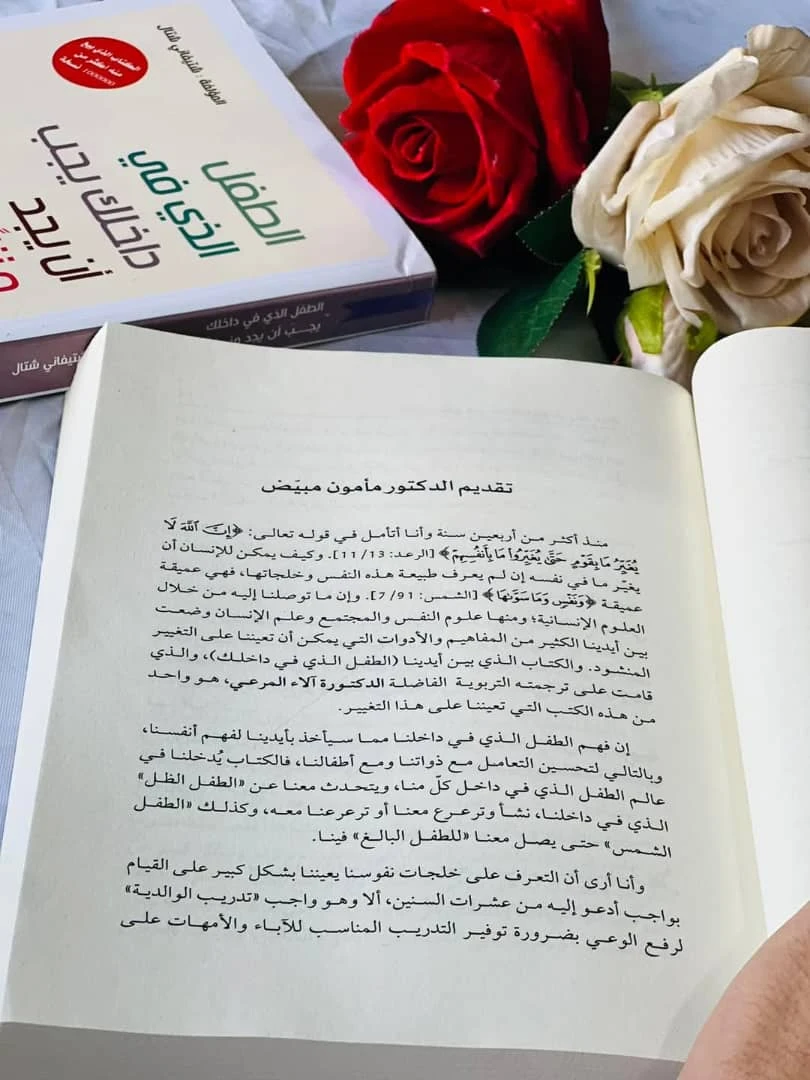 المؤلفة : شتيفاني شتال
الكتاب الذي بيع
منه أكثر من
1000000 نسخة
الطفل
الذي في
داخلك يجب
أن يجد
الطفل الذي في داخلك
يجب أن يجد
شتيفاني شتال
تقديم الدكتور مأمون مبيّض
منذ أكثر من أربعين سنة وأنا أتأمل في قوله تعالى: ﴿إِنَّ ٱللَّهَ لَا
يُغَيِّرُ مَا بِقَوْمٍ حَتَّىٰ يُغَيِّرُواْ مَا بِأَنفُسِهِمْ﴾ [الرعد: 11/13]. وكيف يمكن للإنسان أن
يغيّر ما في نفسه إن لم يعرف طبيعة هذه النفس وخلجاتها، فهي عميقة
عميقة ﴿وَنَفْسٍ وَمَا سَوَّىٰهَا﴾ [الشمس: 7/91]. وإن ما توصلنا إليه من خلال
العلوم الإنسانية؛ ومنها علوم النفس والمجتمع وعلم الإنسان وضعت
بين أيدينا الكثير من المفاهيم والأدوات التي يمكن أن تعيننا على التغيير
المنشود. والكتاب الذي بين أيدينا (الطفل الذي في داخلك)، والذي
قامت على ترجمته التربوية الفاضلة الدكتورة آلاء المرعي، هو واحد
من هذه الكتب التي تعيننا على هذا التغيير.
إن فهم الطفل الذي في داخلنا مما سيأخذ بأيدينا لفهم أنفسنا،
وبالتالي لتحسين التعامل مع ذواتنا ومع أطفالنا، فالكتاب يُدخلنا في
عالم الطفل الذي في داخل كلّ منا، ويتحدث معنا عن «الطفل الظل»
الذي في داخلنا، نشأ وترعرع معنا أو ترعرعنا معه، وكذلك «الطفل
الشمس» حتى يصل معنا «للطفل البالغ» فينا.
وأنا أرى أن التعرف على خلجات نفوسنا يعيننا بشكل كبير على القيام
بواجب أدعو إليه من عشرات السنين، ألا وهو واجب «تدريب الوالدية»
لرفع الوعي بضرورة توفير التدريب المناسب للآباء والأمهات على